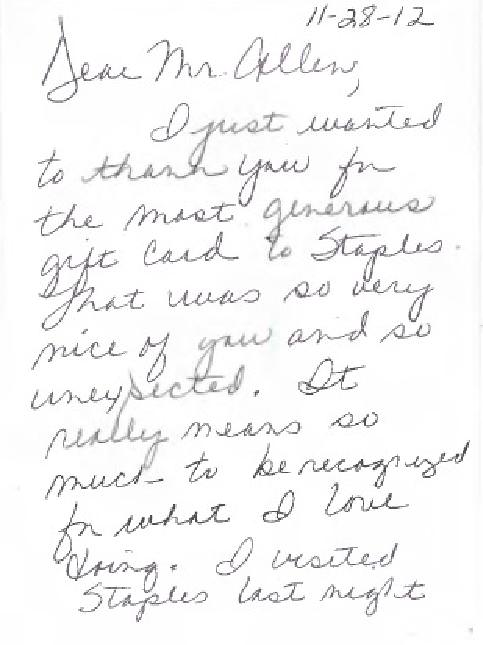 11-28-12
Dear Mr. Allen,
I just wanted
to thank you for
the most generous
gift card to Staples.
That was so very
nice of you and so
unexpected. It
really means so
much to be recognized
for what I love
doing. I visited
Staples last night